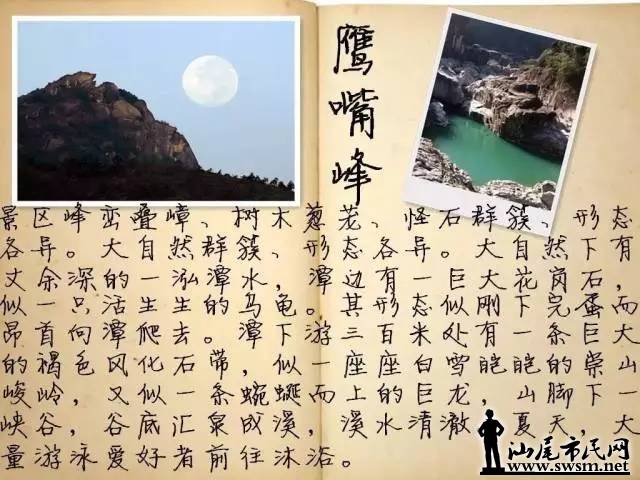 鹰嘴峰
景区峰峦叠嶂、树木葱茏、怪石群簇、形态
各异。大自然群簇、形态各异。大自然下有
丈余深的一泓潭水，潭边有一巨大花岗石，
似一只活生生的乌龟。其形态似刚下完蛋而
昂首向潭爬去。潭下游三百米处有一条巨大
的褐色风化石带，似一座座白雪皑皑的崇山
峻岭，又似一条蜿蜒而上的巨龙，山脚下一
峡谷，谷底汇泉成溪，溪水清澈，夏天，大
量游泳爱好者前往沐浴。
汕尾市民网
www.swsm.net